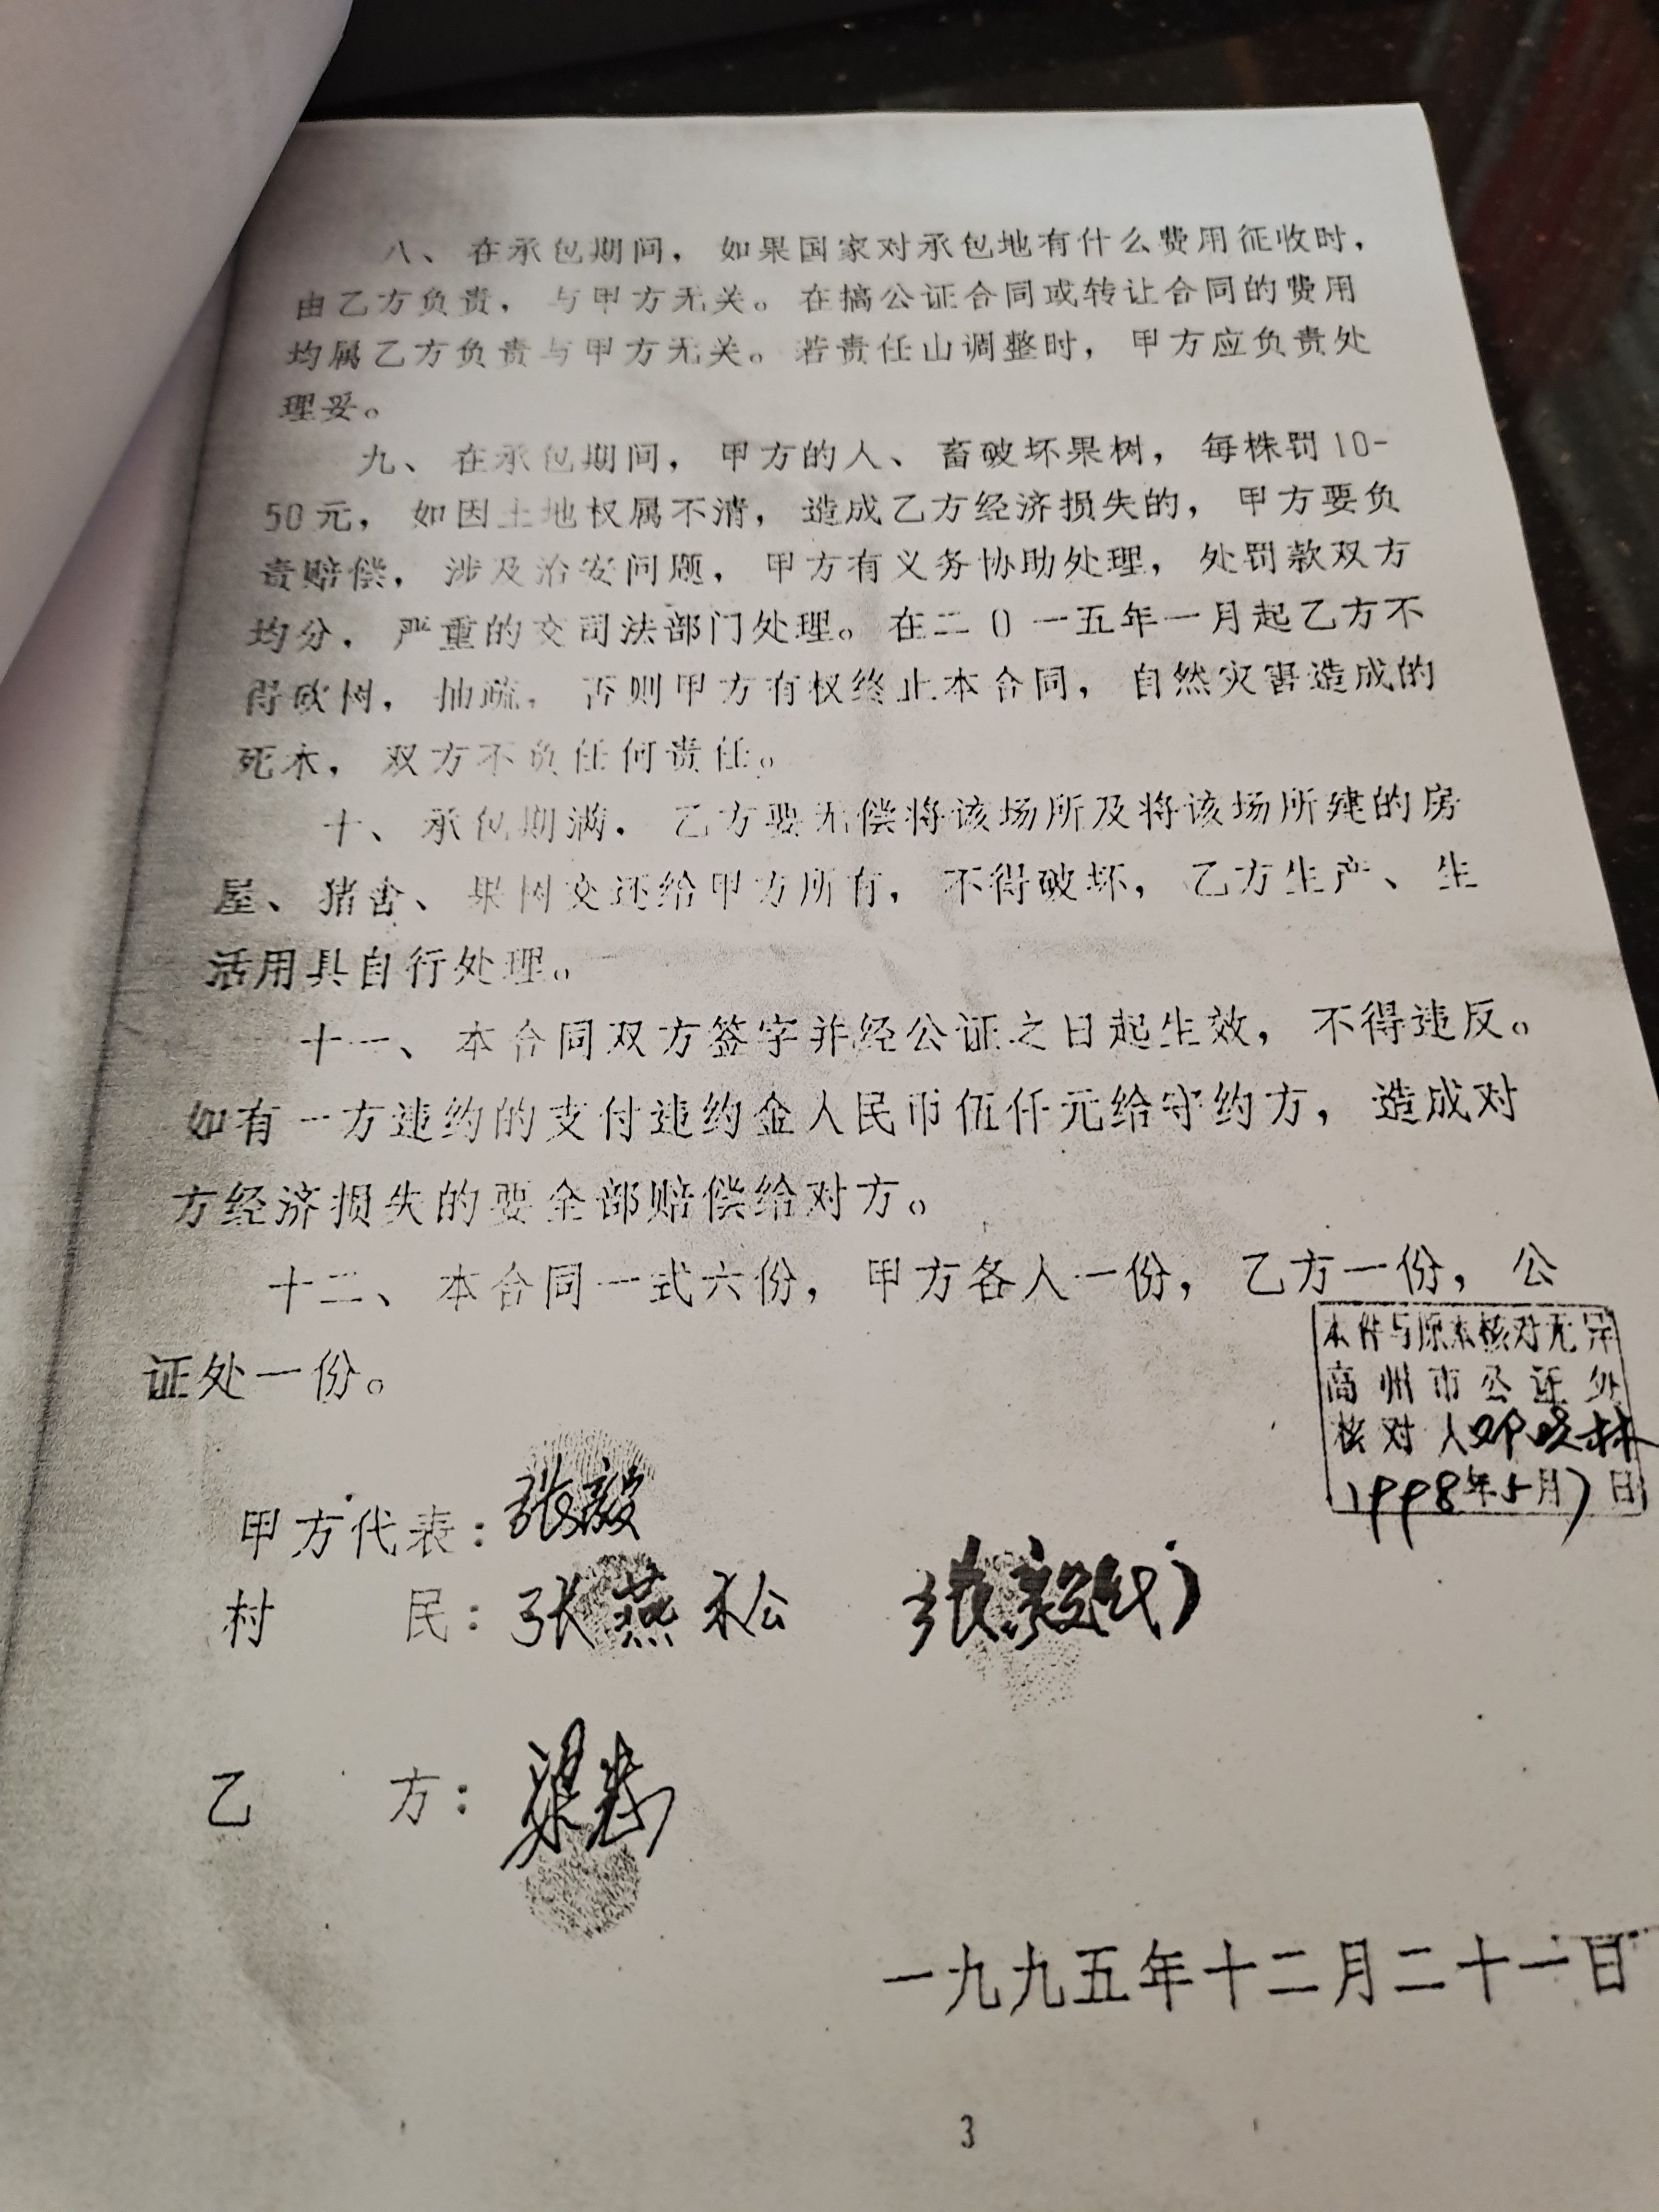 八、在承包期间，如果国家对承包地有什么费用征收时，
由乙方负责，与甲方无关。在搞公证合同或转让合同的费用
均属乙方负责与甲方无关。若责任山调整时，甲方应负责处
理妥。
九、在承包期间，甲方的人、畜破坏果树，每株罚10-
50元，如因土地权属不清，造成乙方经济损失的，甲方要负
责赔偿，涉及治安问题，甲方有义务协助处理，处罚款双方
均分，严重的交司法部门处理。在二0一五年一月起乙方不
得砍树，抽疏，否则甲方有权终止本合同，自然灾害造成的
死木，双方不负任何责任。
十、承包期满，乙方要无偿将该场所及将该场所建的房
屋、猪舍、果树交还给甲方所有，不得破坏，乙方生产、生
活用具自行处理。
十一、本合同双方签字并经公证之日起生效，不得违反。
如有一方违约的支付违约金人民币伍仟元给守约方，造成对
方经济损失的要全部赔偿给对方。
十二、本合同一式六份，甲方各人一份，乙方一份，公
证处一份。
本件与原本核对无异
高州市公证处
核对人邓晓林
1998年5月7日
甲方代表：张毅
村民：张燕松 张毅(代)
乙方：梁
一九九五年十二月二十一日
3